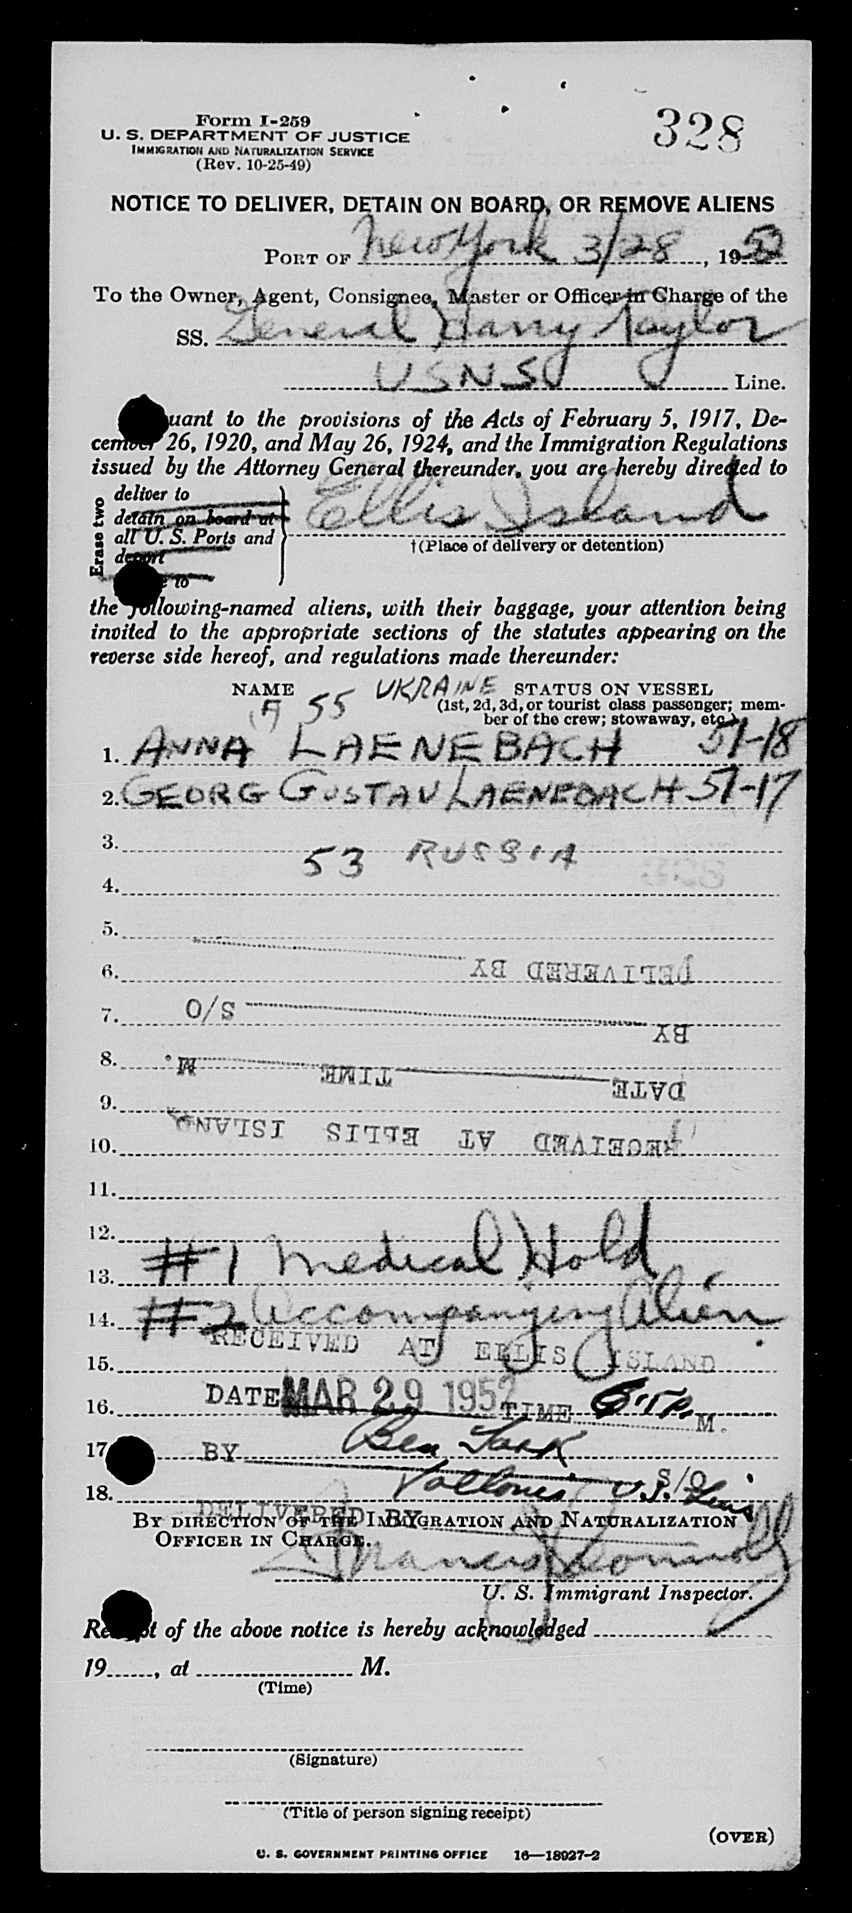 Form I-259
328
U. S. DEPARTMENT OF JUSTICE
IMMIGRATION AND NATURALIZATION SERVICE
(Rev. 10-25-49)
NOTICE TO DELIVER, DETAIN ON BOARD, OR REMOVE ALIENS
PORT OF New York 3/28, 1952
To the Owner, Agent, Consignee, Master or Officer in Charge of the
SS. General Harry Taylor
USNS Line.
uant to the provisions of the Acts of February 5, 1917, De-
cember 26, 1920, and May 26, 1924, and the Immigration Regulations
issued by the Attorney General thereunder, you are hereby directed to
Erase two
deliver to
detain on board at
all U. S. Ports and
deport
to
Ellis Island
†(Place of delivery or detention)
the following-named aliens, with their baggage, your attention being
invited to the appropriate sections of the statutes appearing on the
reverse side hereof, and regulations made thereunder:
NAME UKRAINE STATUS ON VESSEL
55 (1st, 2d, 3d, or tourist class passenger; mem-
ber of the crew; stowaway, etc.)
1. ANNA LAENEBACH 51-18
2. GEORG GUSTAV LAENEBACH 51-17
3.
53 RUSSIA
4.
5.
6. DELIVERED BY
7. S/O
BY
8. M. TIME
DATE
9.
10. RECEIVED AT ELLIS ISLAND
11.
12.
13. #1 Medical Hold
14. #2 Accompanying Alien
RECEIVED AT ELLIS ISLAND
15.
16. DATE MAR 29 1952 TIME M.
17. BY Ben
S/O
18.
DELIVERED BY
BY DIRECTION OF THE IMMIGRATION AND NATURALIZATION
OFFICER IN CHARGE.
Francis
U. S. Immigrant Inspector.
Receipt of the above notice is hereby acknowledged
19......, at M.
(Time)
(Signature)
(Title of person signing receipt)
(OVER)
U. S. GOVERNMENT PRINTING OFFICE 16—18927-2